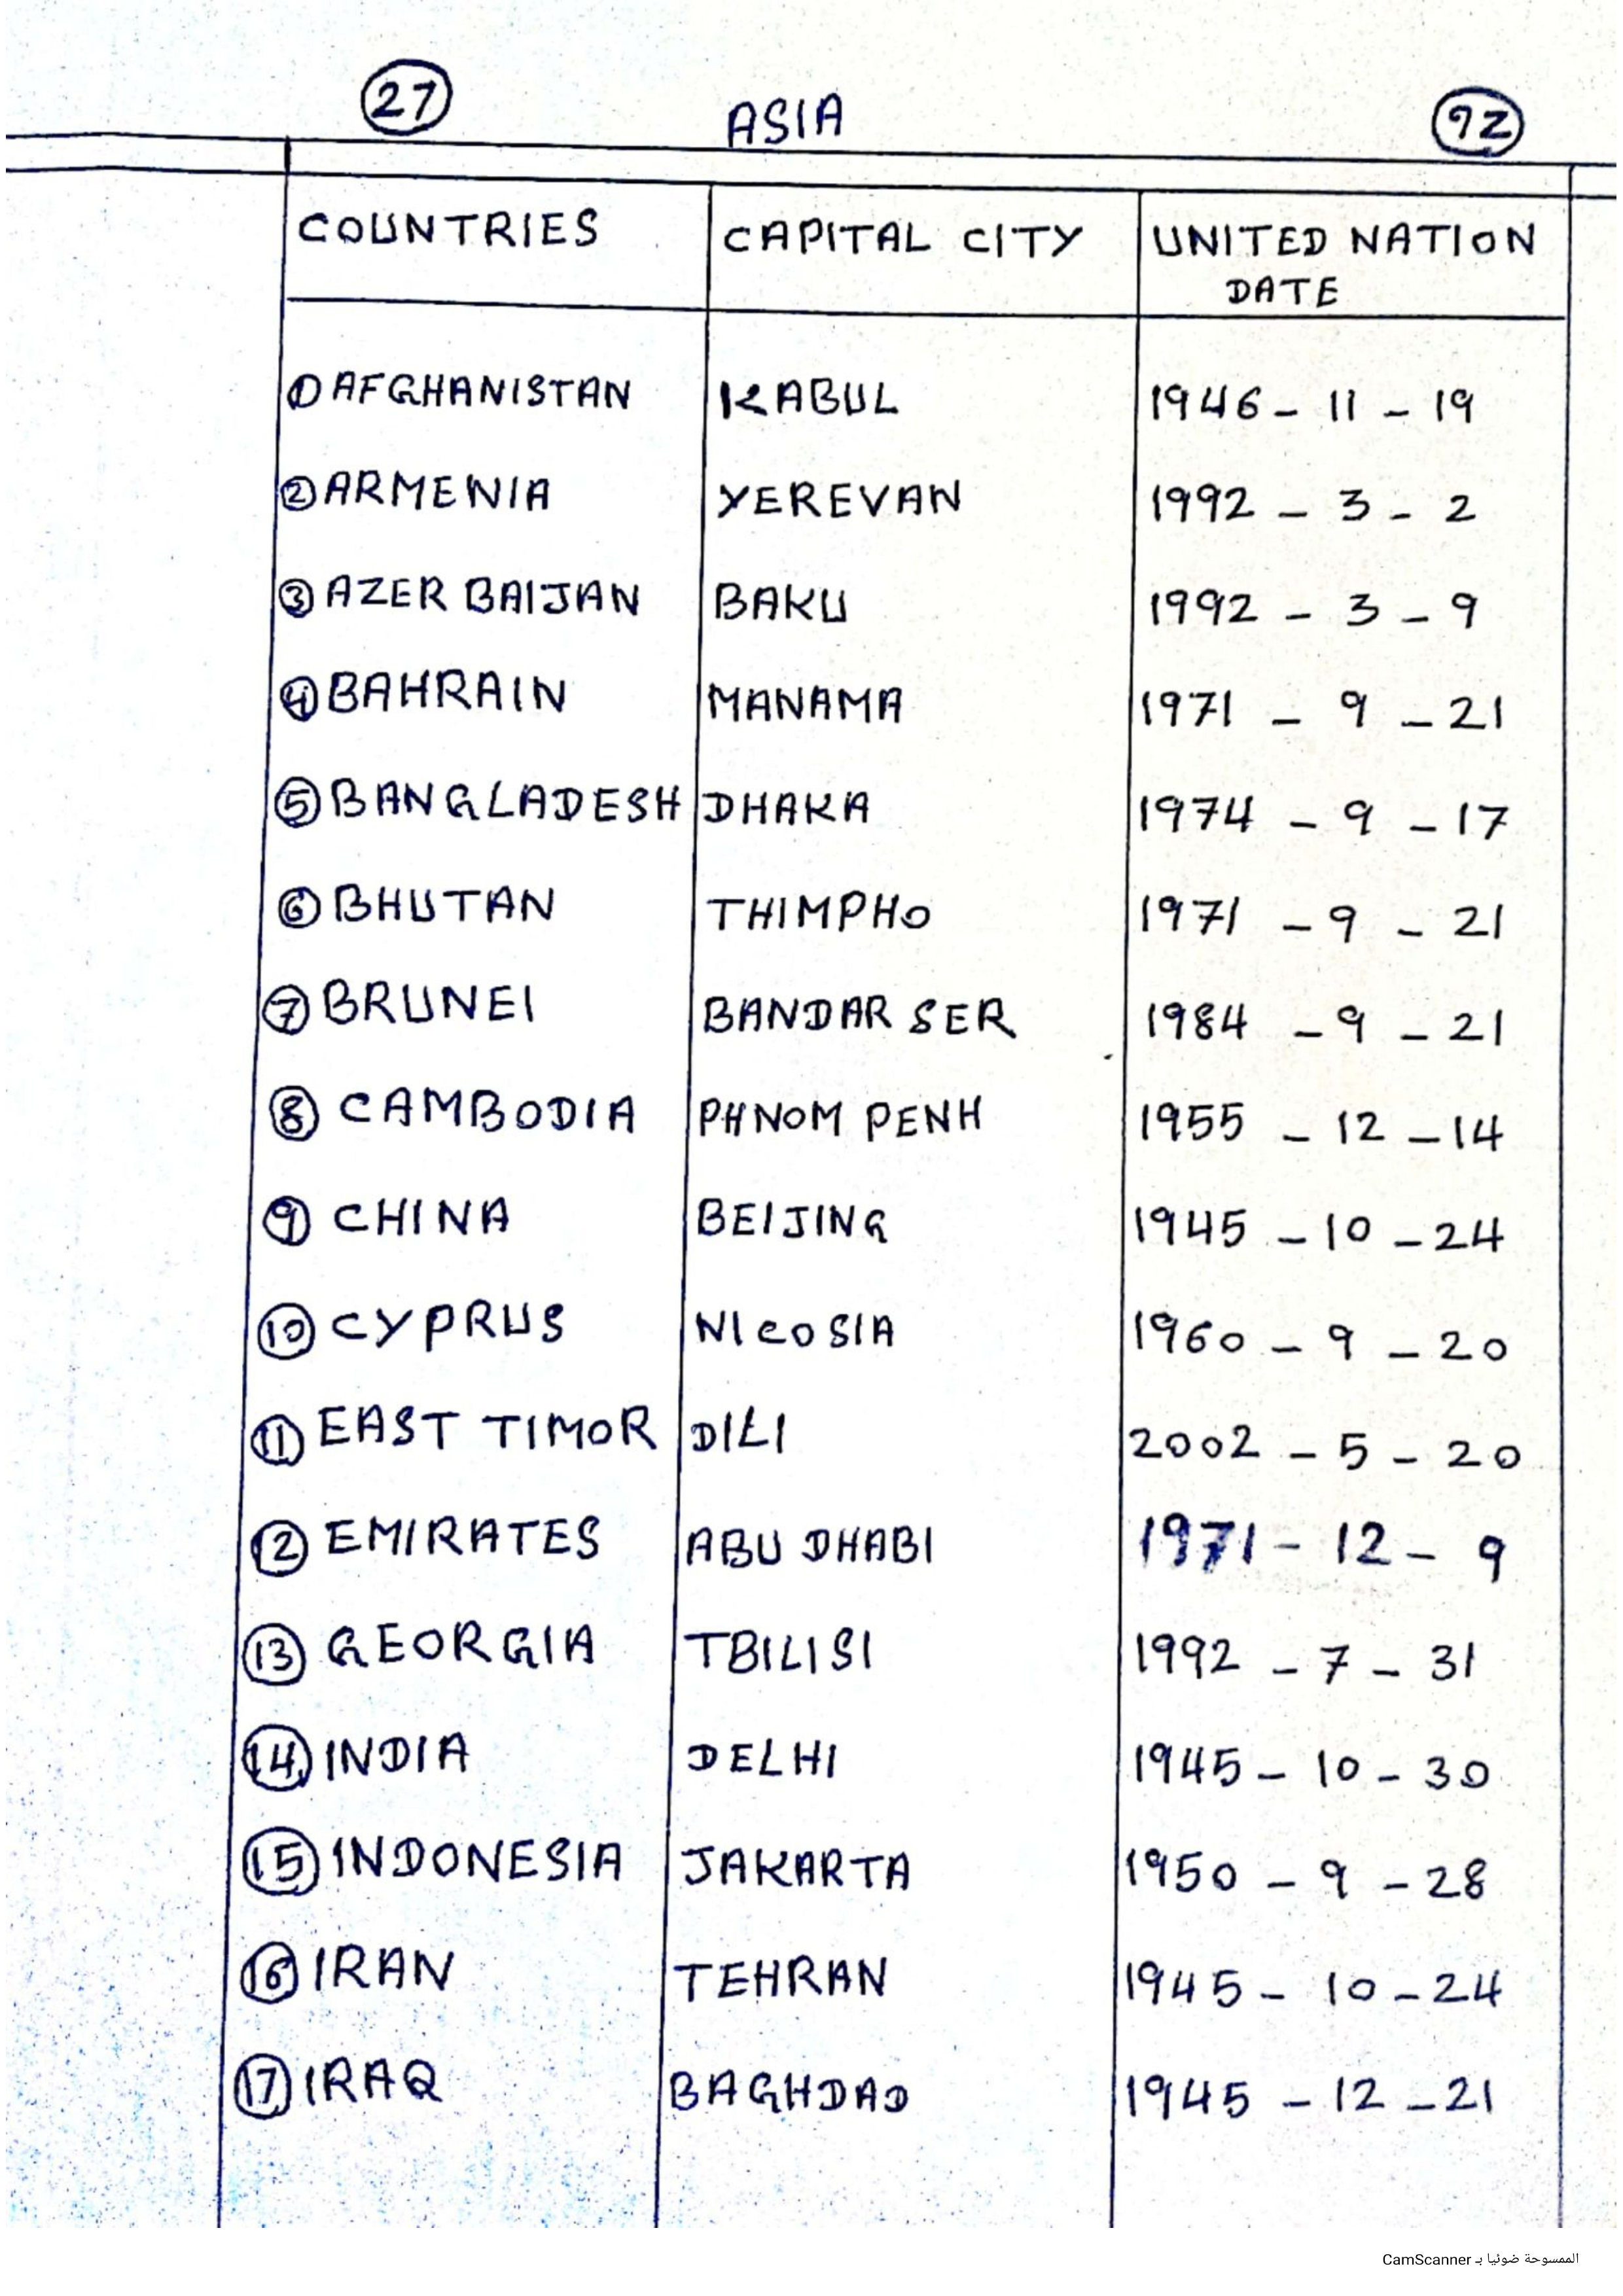 27 ASIA 92
COUNTRIES CAPITAL CITY UNITED NATION
DATE
1 AFGHANISTAN KABUL 1946 - 11 - 19
2 ARMENIA YEREVAN 1992 - 3 - 2
3 AZER BAIJAN BAKU 1992 - 3 - 9
4 BAHRAIN MANAMA 1971 - 9 - 21
5 BANGLADESH DHAKA 1974 - 9 - 17
6 BHUTAN THIMPHO 1971 - 9 - 21
7 BRUNEI BANDAR SER 1984 - 9 - 21
8 CAMBODIA PHNOM PENH 1955 - 12 - 14
9 CHINA BEIJING 1945 - 10 - 24
10 CYPRUS NICOSIA 1960 - 9 - 20
11 EAST TIMOR DILI 2002 - 5 - 20
12 EMIRATES ABU DHABI 1971 - 12 - 9
13 GEORGIA TBILISI 1992 - 7 - 31
14 INDIA DELHI 1945 - 10 - 30
15 INDONESIA JAKARTA 1950 - 9 - 28
16 IRAN TEHRAN 1945 - 10 - 24
17 IRAQ BAGHDAD 1945 - 12 - 21
الممسوحة ضوئيا بـ CamScanner